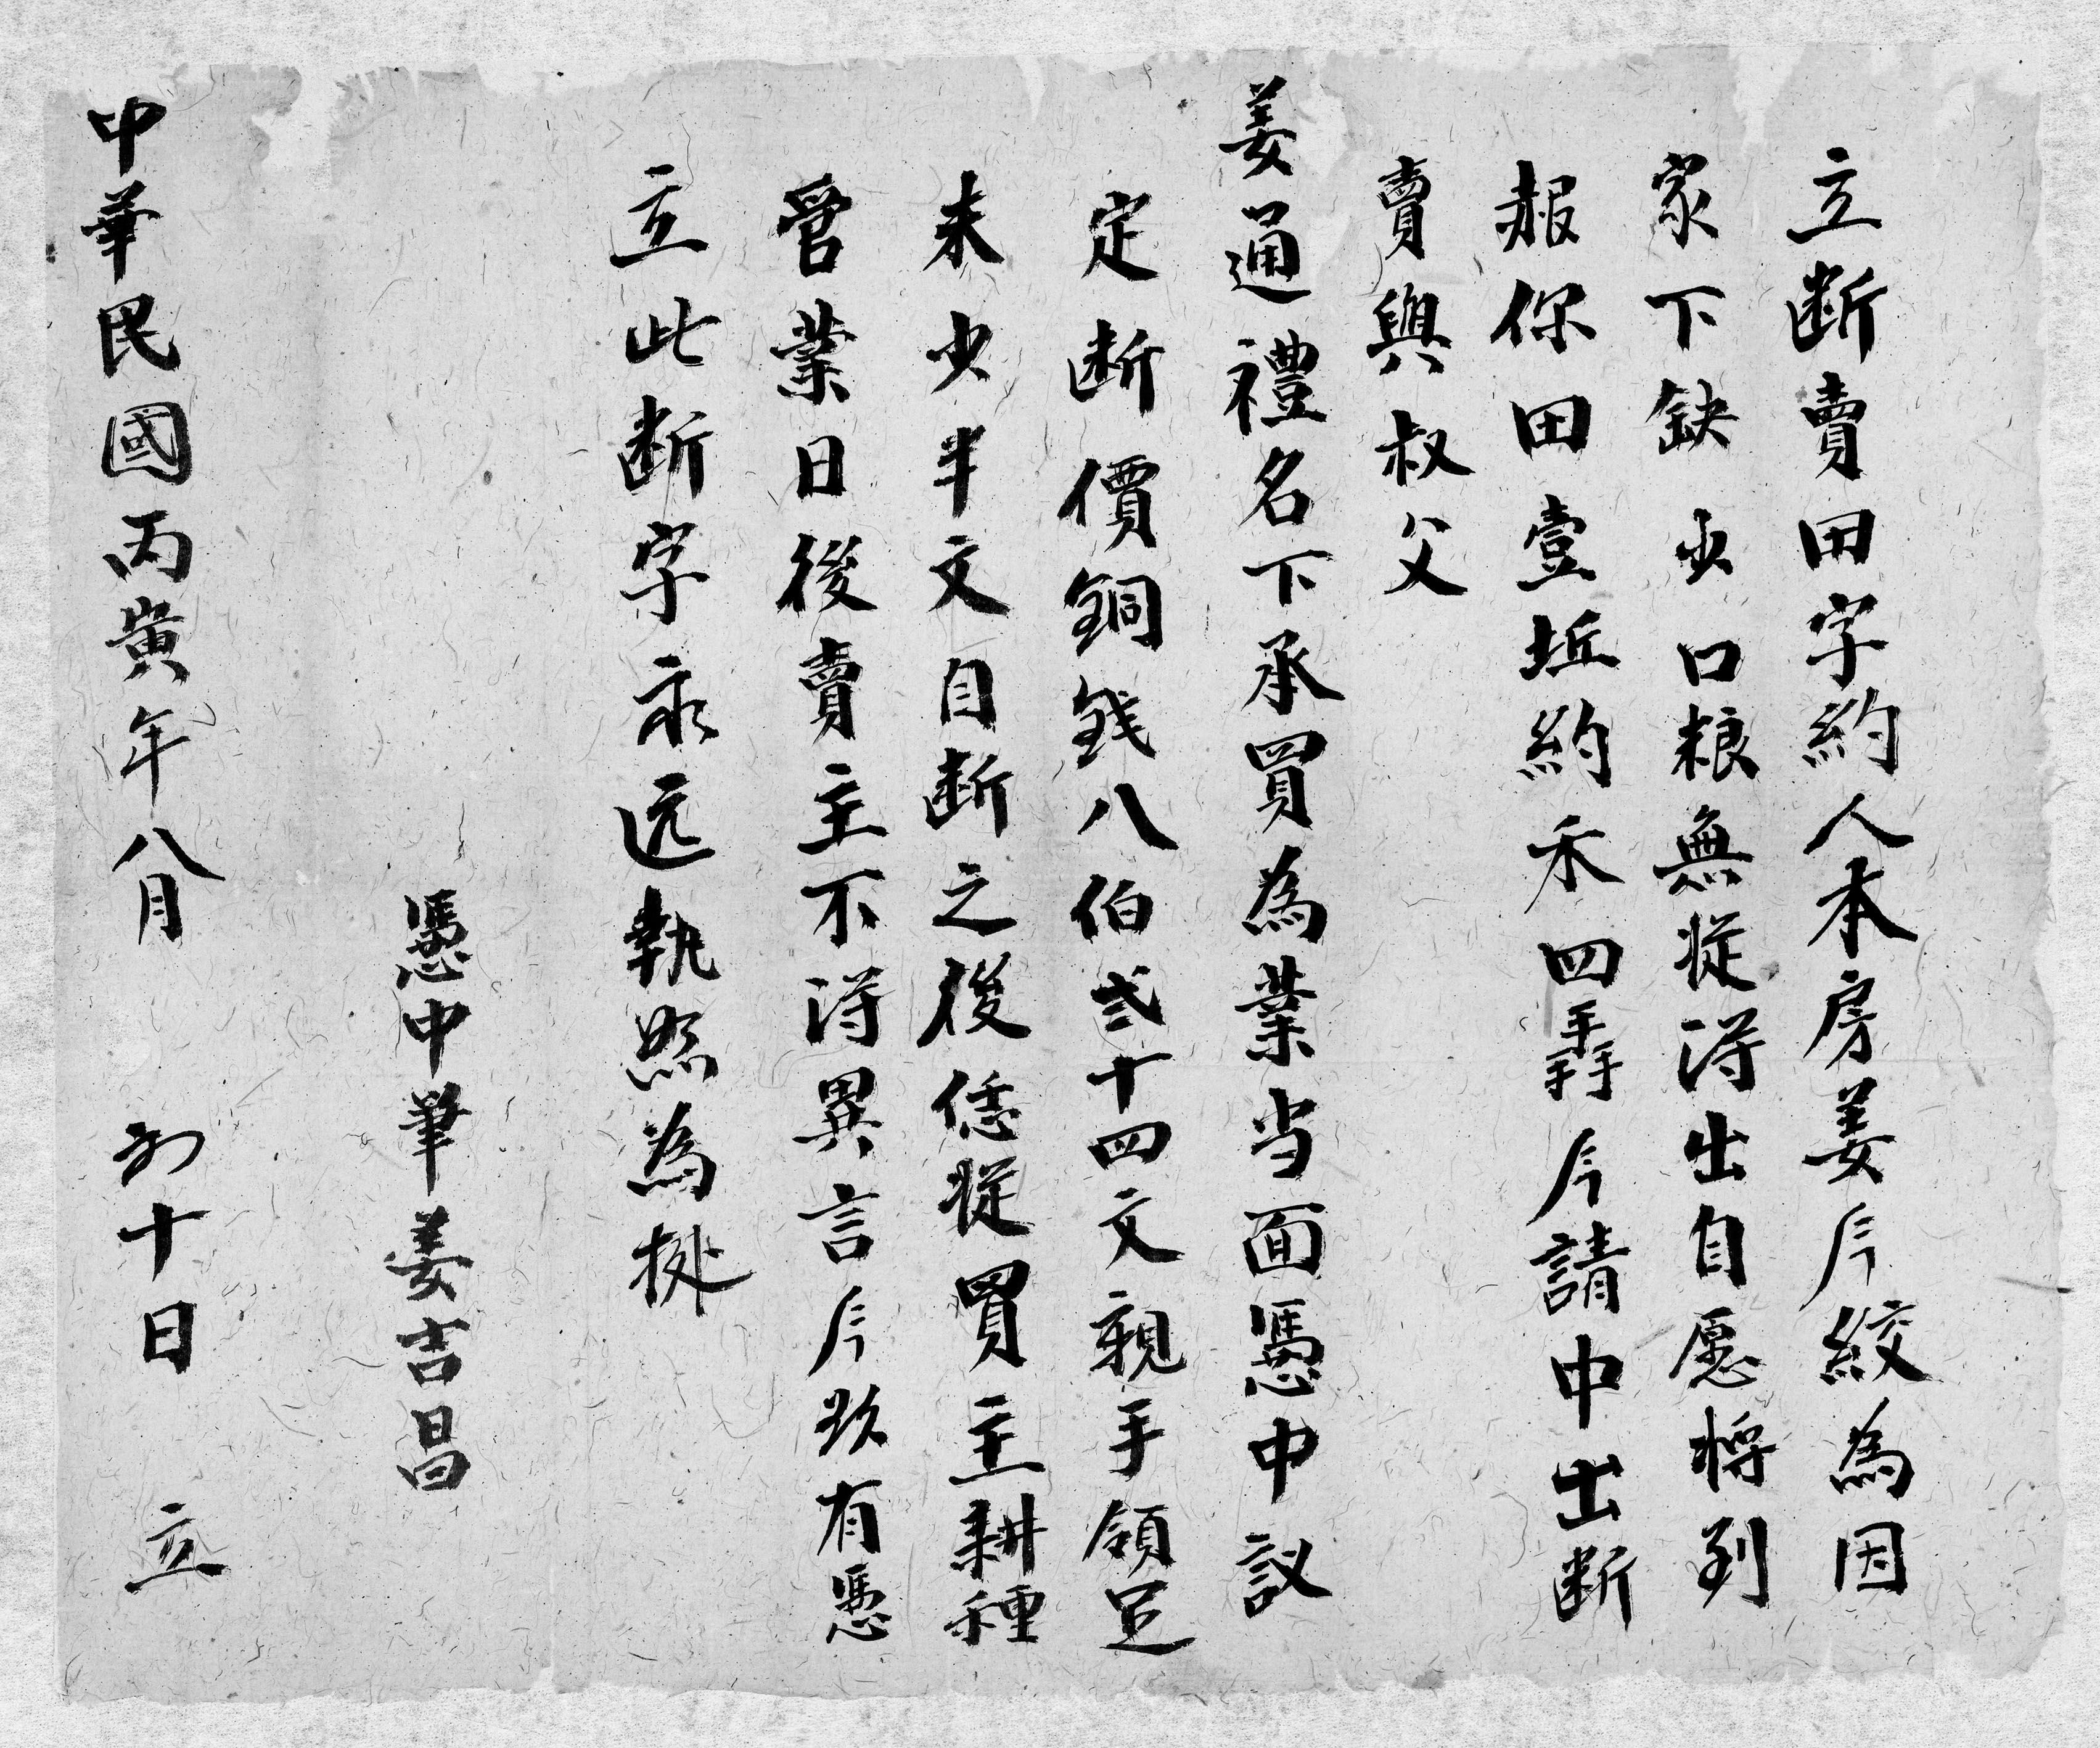 立断賣田字約人本房姜絞為因
家下鈌少口粮無從淂出自愿将到
報你田壹坵約禾四今請中出断
賣與叔父
姜通禮名下承買為業当面憑中議
定断價銅錢八伯弍十四文親手領足
未少半文自断之後恁從買主耕種
管業日後賣主不淂異言今欲有憑
立此断字永远執照為據
憑中筆姜吉昌
中華民國丙寅年八月初十日立